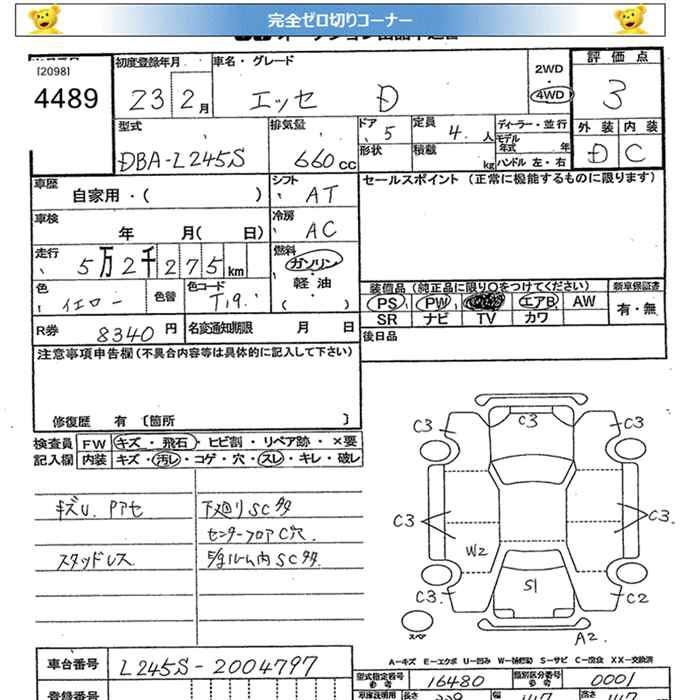 完全ゼロ切りコーナー
[2098]
4489
初度登録年月
23 2月
車名・グレード
エッセ D
2WD
・
4WD
評価点
3
外装 内装
D C
型式
DBA-L245S
排気量
660cc
ドア
5
定員
4. 人
ディーラー・並行
モデル年式 年
形状
積載 kg
ハンドル 左・右
車歴
自家用・( )
シフト
AT
セールスポイント (正常に機能するものに限ります)
車検
年 月( 日)
冷房
AC
走行
5万2千275km
燃料
ガソリン
・
軽油
( )
色
イエロー
色替
色コード
T19.
装備品(純正品に限り○をつけてください)
新車保証書
PS PW エアB AW
有・無
SR ナビ TV カワ
R券
8340円
名変通知期限 月 日
後日品
注意事項申告欄(不具合内容等は具体的に記入して下さい)
修復歴 有 〔箇所 〕
検査員
記入欄
FW キズ・飛石・ヒビ割・リペア跡・×要
内装 キズ・汚レ・コゲ・穴・スレ・キレ・破レ
キズU. Pアセ
下廻りSC多
センターフロアC穴.
スタッドレス
E/gルーム内SC多.
C3
C3
C3
C3
C3.
W2
S1
C3.
C2
スペア
A2.
A-キズ E-エクボ U-凹み W-補修跡 S-サビ C-腐食 XX-交換済
車台番号
L245S-2004797
型式指定番号
16480
類別区分番号
0001
登録番号